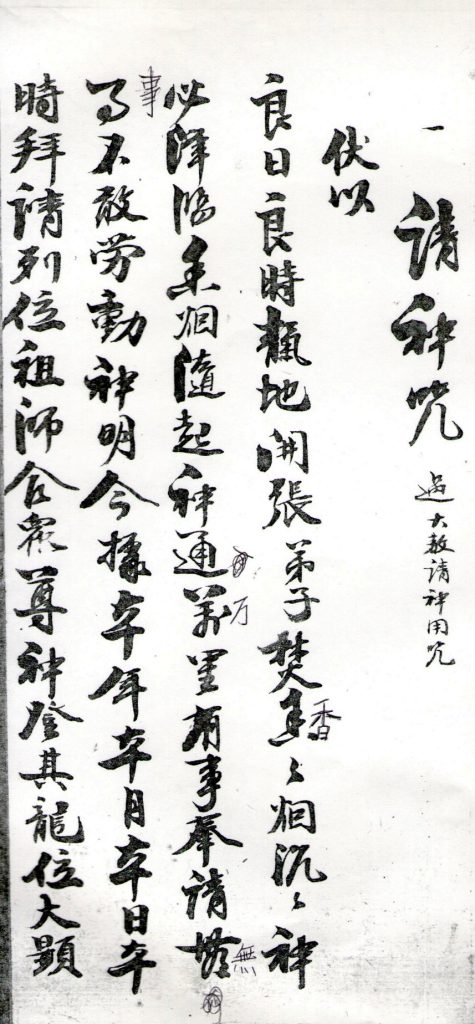 一 請神咒 過大教請神用咒
伏以
良日良時龍地開張弟子焚香〻烟沉〻神
必降臨香烟隨起神通萬里有事奉請無
事不敢劳動神明今據本年本月本日本
時拜請列位祖師合衆尊神登其龍位大顕
香
万
無
事